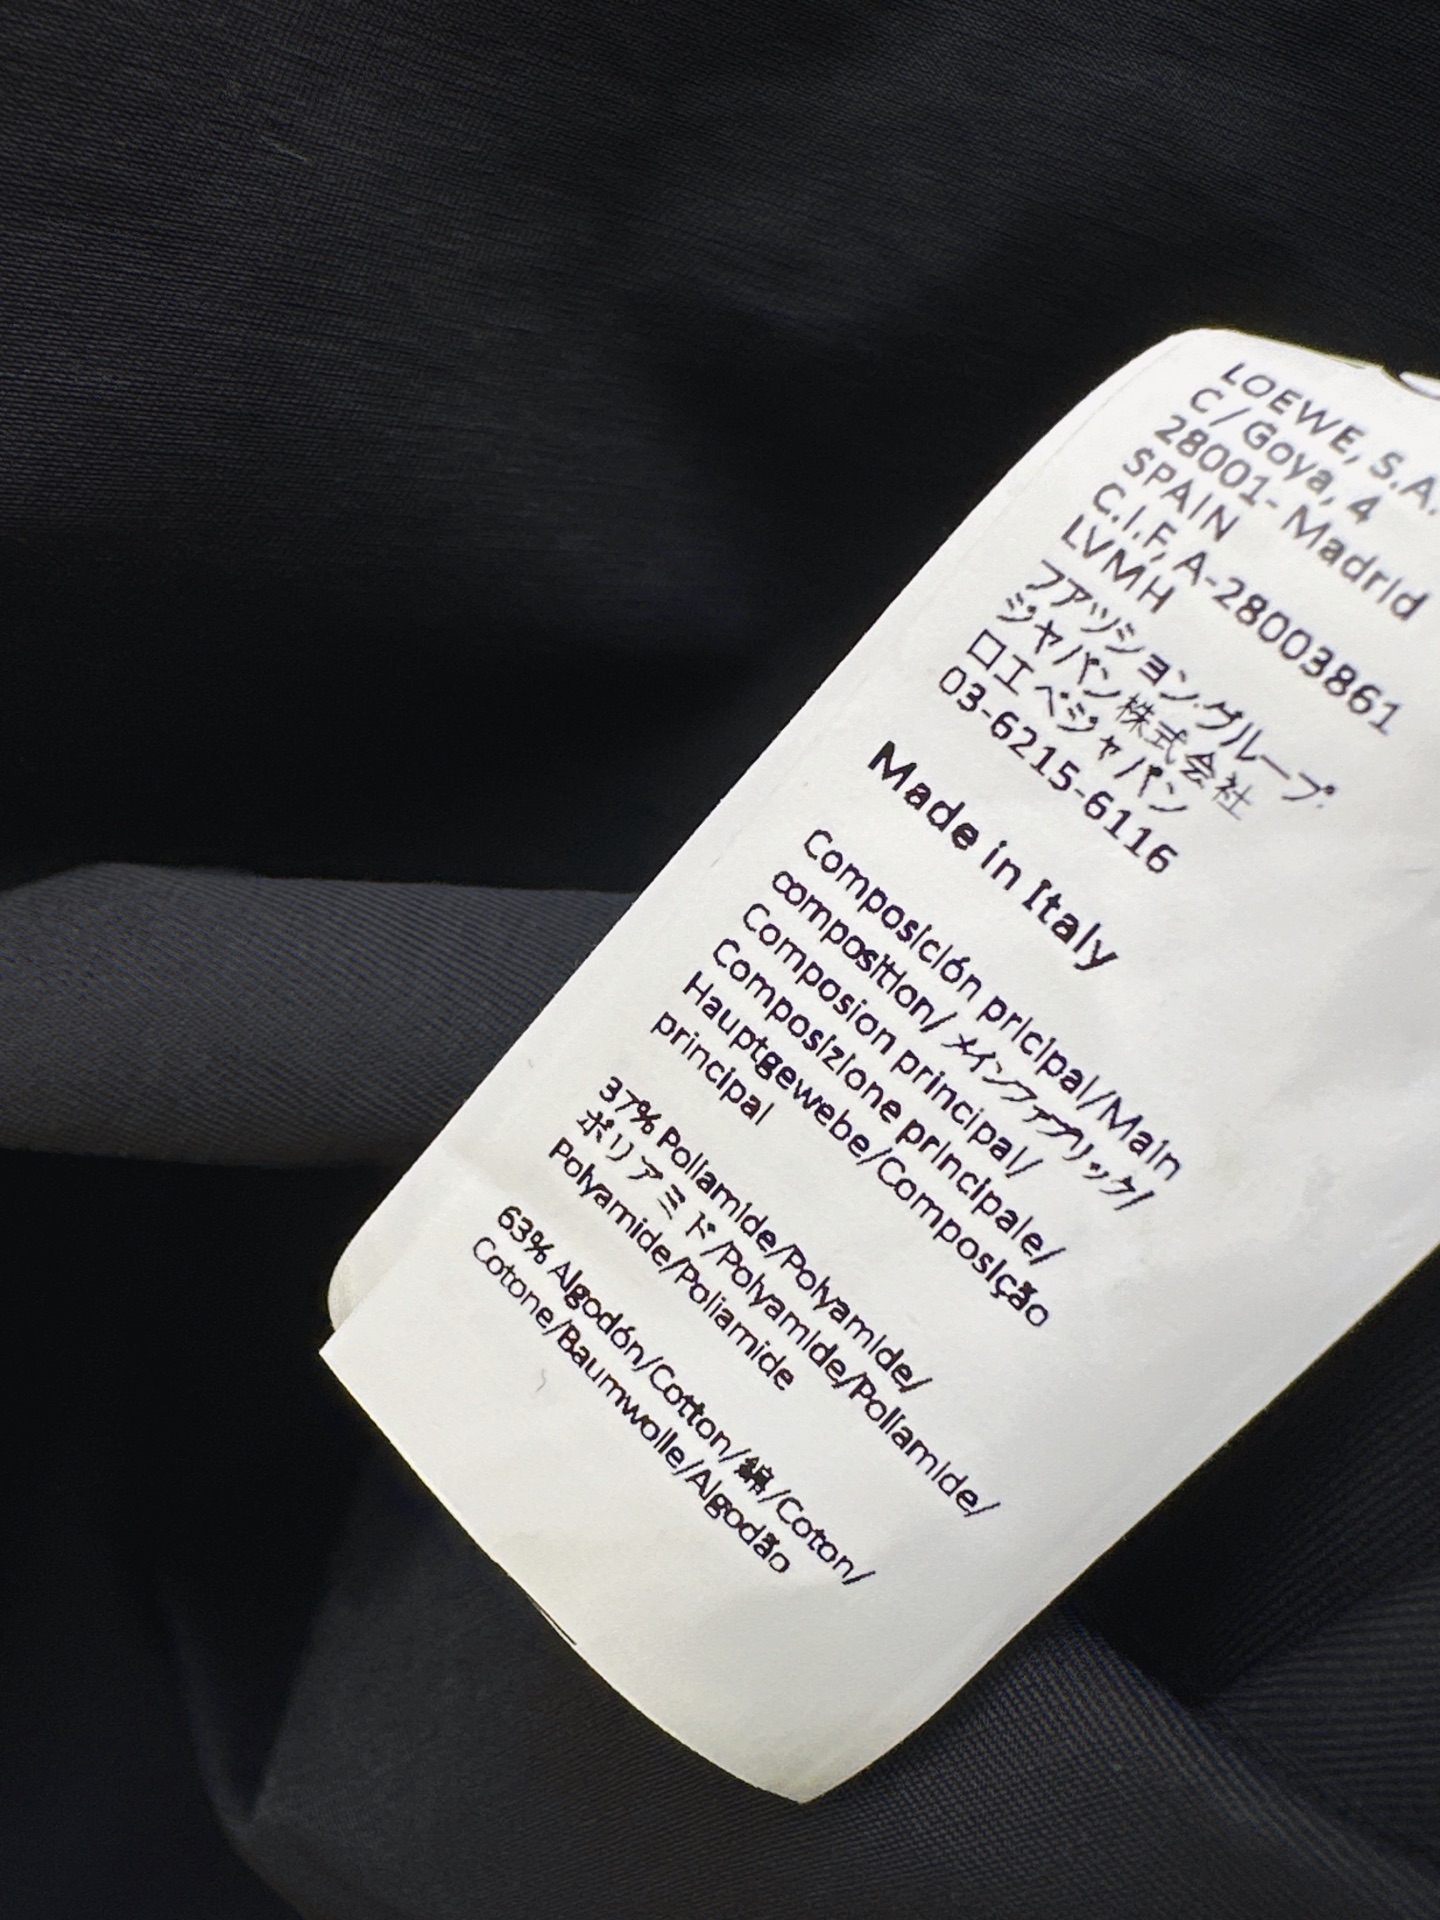 LOEWE, S.A.
C/Goya, 4
28001- Madrid
SPAIN
C.I.F, A-28003861
LVMH
フアツシヨン.グループ.
ジヤパン株式会社
ロエベジャパン
03-6215-6116
Made in Italy
Composición pricipal/Main
composition/メインファブリック/
Composion principal/
Composizione principale/
Hauptgewebe/Composição
principal
37% Poliamide/Polyamide/
ポリアミド/Polyamide/Poliamide/
Polyamide/Poliamide
63% Algodón/Cotton/綿/Coton/
Cotone/Baumwolle/Algodão